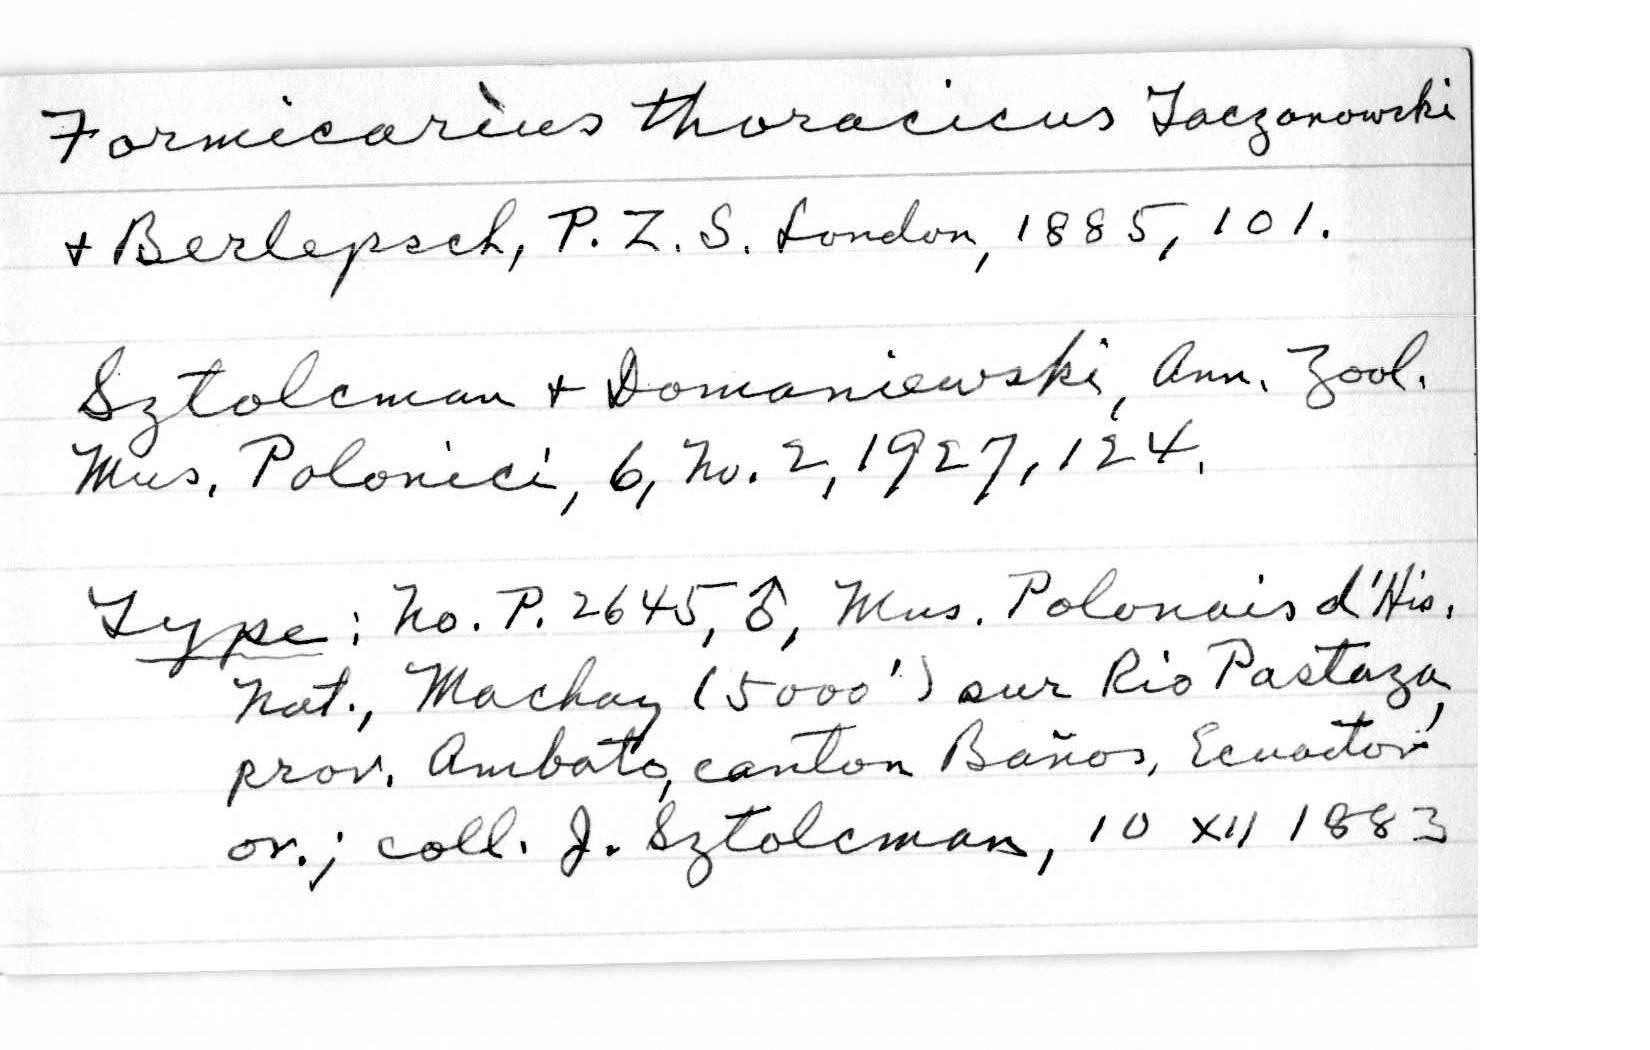 Formicarius thoracicus Taczanowski
+ Berlepsch, P. Z. S. London, 1885, 101.
Sztolcman + Domaniewski, Ann. Zool.
Mus. Polonici, 6, No. 2, 1927, 124.
Type: No. P. 2645, ♂, Mus. Polonais d'His.
Nat., Machay (5000') sur Rio Pastaza,
prov. Ambato, canton Baños, Ecuador
or.; coll. J. Sztolcman, 10 XII 1883